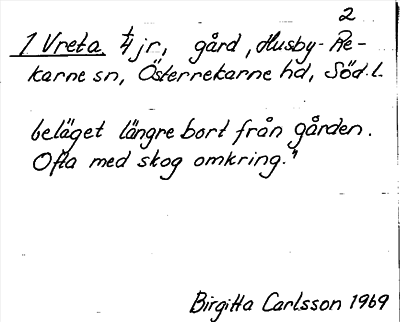 2
1 Vreta ⁴/4 jr, gård, Husby-Re-
karne sn, Österrekarne hd, Söd.l.
beläget längre bort från gården.
Ofta med skog omkring."
Birgitta Carlsson 1969